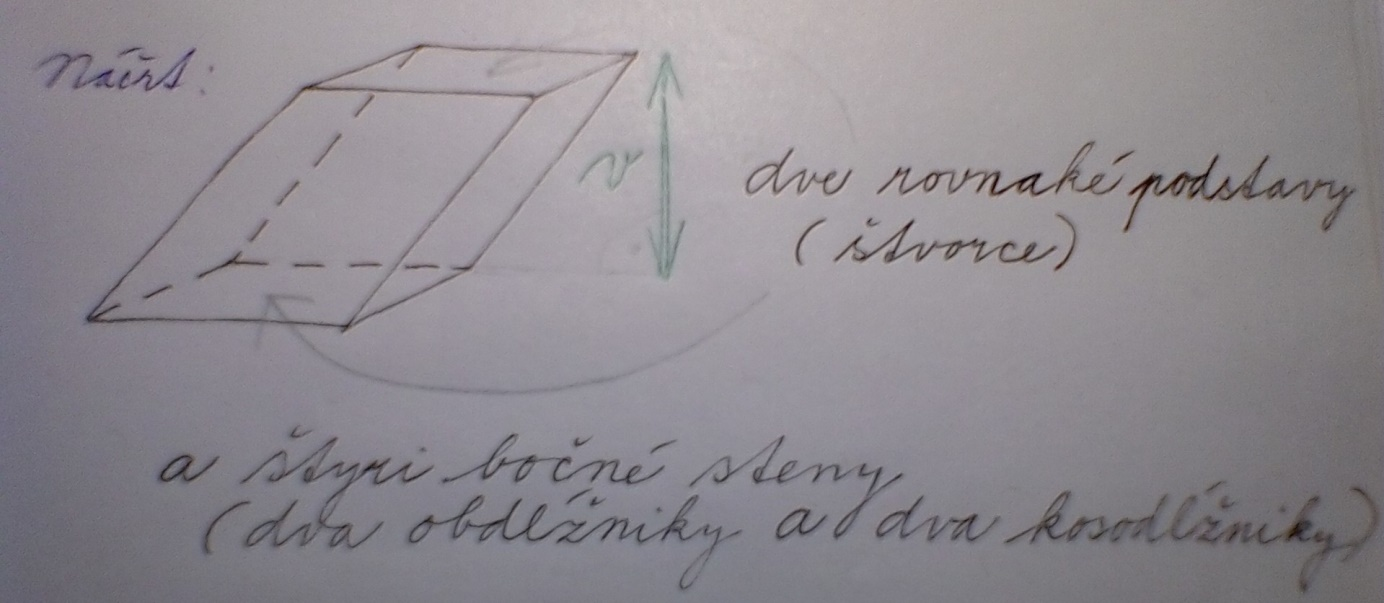 Náčrt:
v
dve rovnaké podstavy
(štvorce)
a štyri bočné steny
(dva obdĺžniky a dva kosodĺžniky)